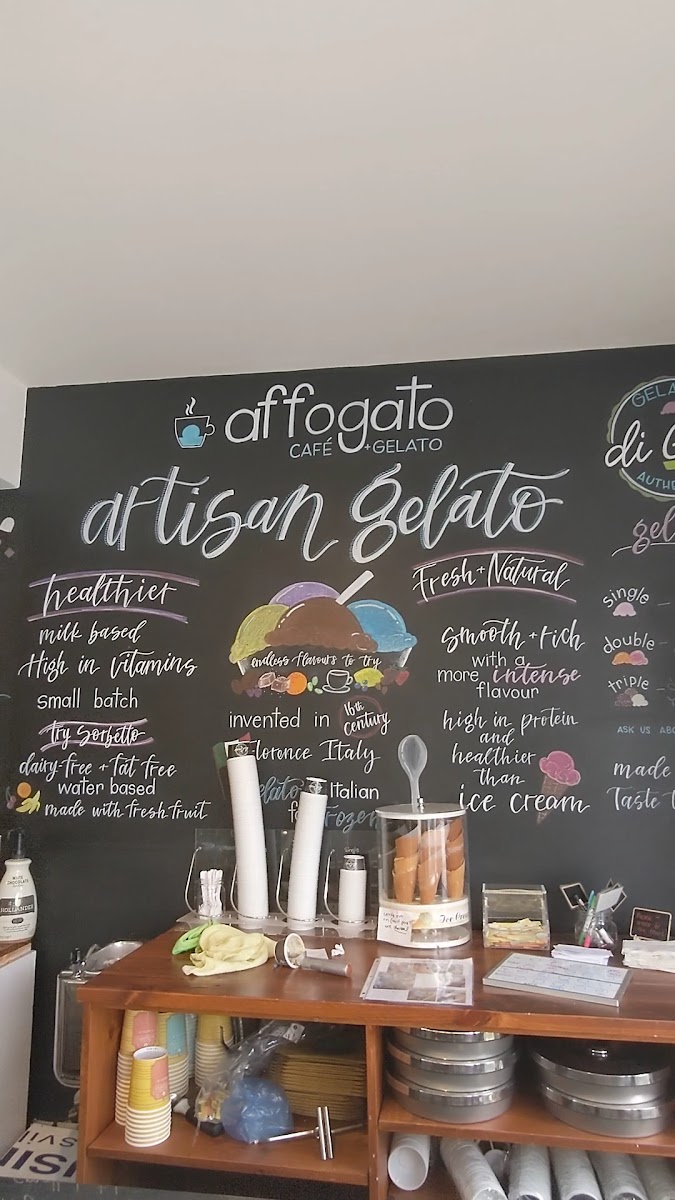 affogato
CAFÉ + GELATO
artisan gelato
healthier
milk based
High in vitamins
small batch
try Sorbetto
dairy-free + fat free
water based
made with fresh fruit
endless flavours to try
invented in 16th Century
Florence Italy
Gelato Italian
Frozen
Fresh + Natural
smooth + rich
with a
more intense
flavour
high in protein
and
healthier
than
ice cream
GELA
di G
AUTHE
gel
single -
double -
triple -
ASK US ABO
made
Taste t
HOLLANDER